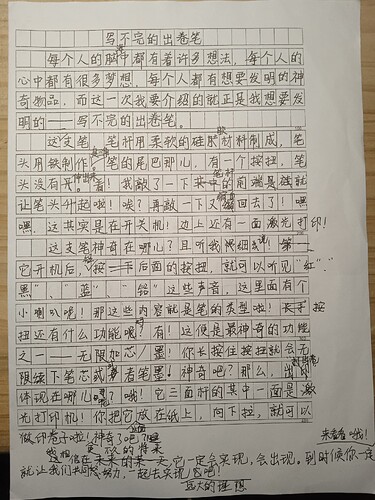 写不完的出卷笔
每个人的脑中都有着许多想法，每个人的
心中都有很多梦想，每个人都有想要发明的神
奇物品，而这一次我要介绍的就正是我想要发
明的——写不完的出卷笔。
这支笔，笔杆用柔软的硅胶材料制成，笔
头用铁制作，笔的尾巴那儿，有一个按扭，笔
头没有 看！我敲了一下 的前端是 就
让笔头升起啦！唉？再敲一下又 回去了！嘿
嘿，这其实是在开关机！边上还有一面激光打印！
这支笔神奇在哪儿？且听我 细
它开机后，按一下后面的按扭，就可以听见“红”、“
黑”、“蓝”、“铅”这些声音，这里面有个
小喇叭呢！那这些内容就是笔的类型啦！ 按
扭还有什么功能呢？有！这便是最神奇的功能
之一——无限加芯/墨！你长按住按扭就会无
限续下笔芯或者笔墨！神奇吧？那么，出
体现在哪儿呢？哦！它三面杆的其中一面是激
光打印机！你把它放在纸上，向下拉，就可以
做印卷子啦！神奇了吧？
我相信在未来的某一天，它一定会实现，会出现。到时候你一定来看看哦！
就让我们共同 努力，一起去实现它吧！